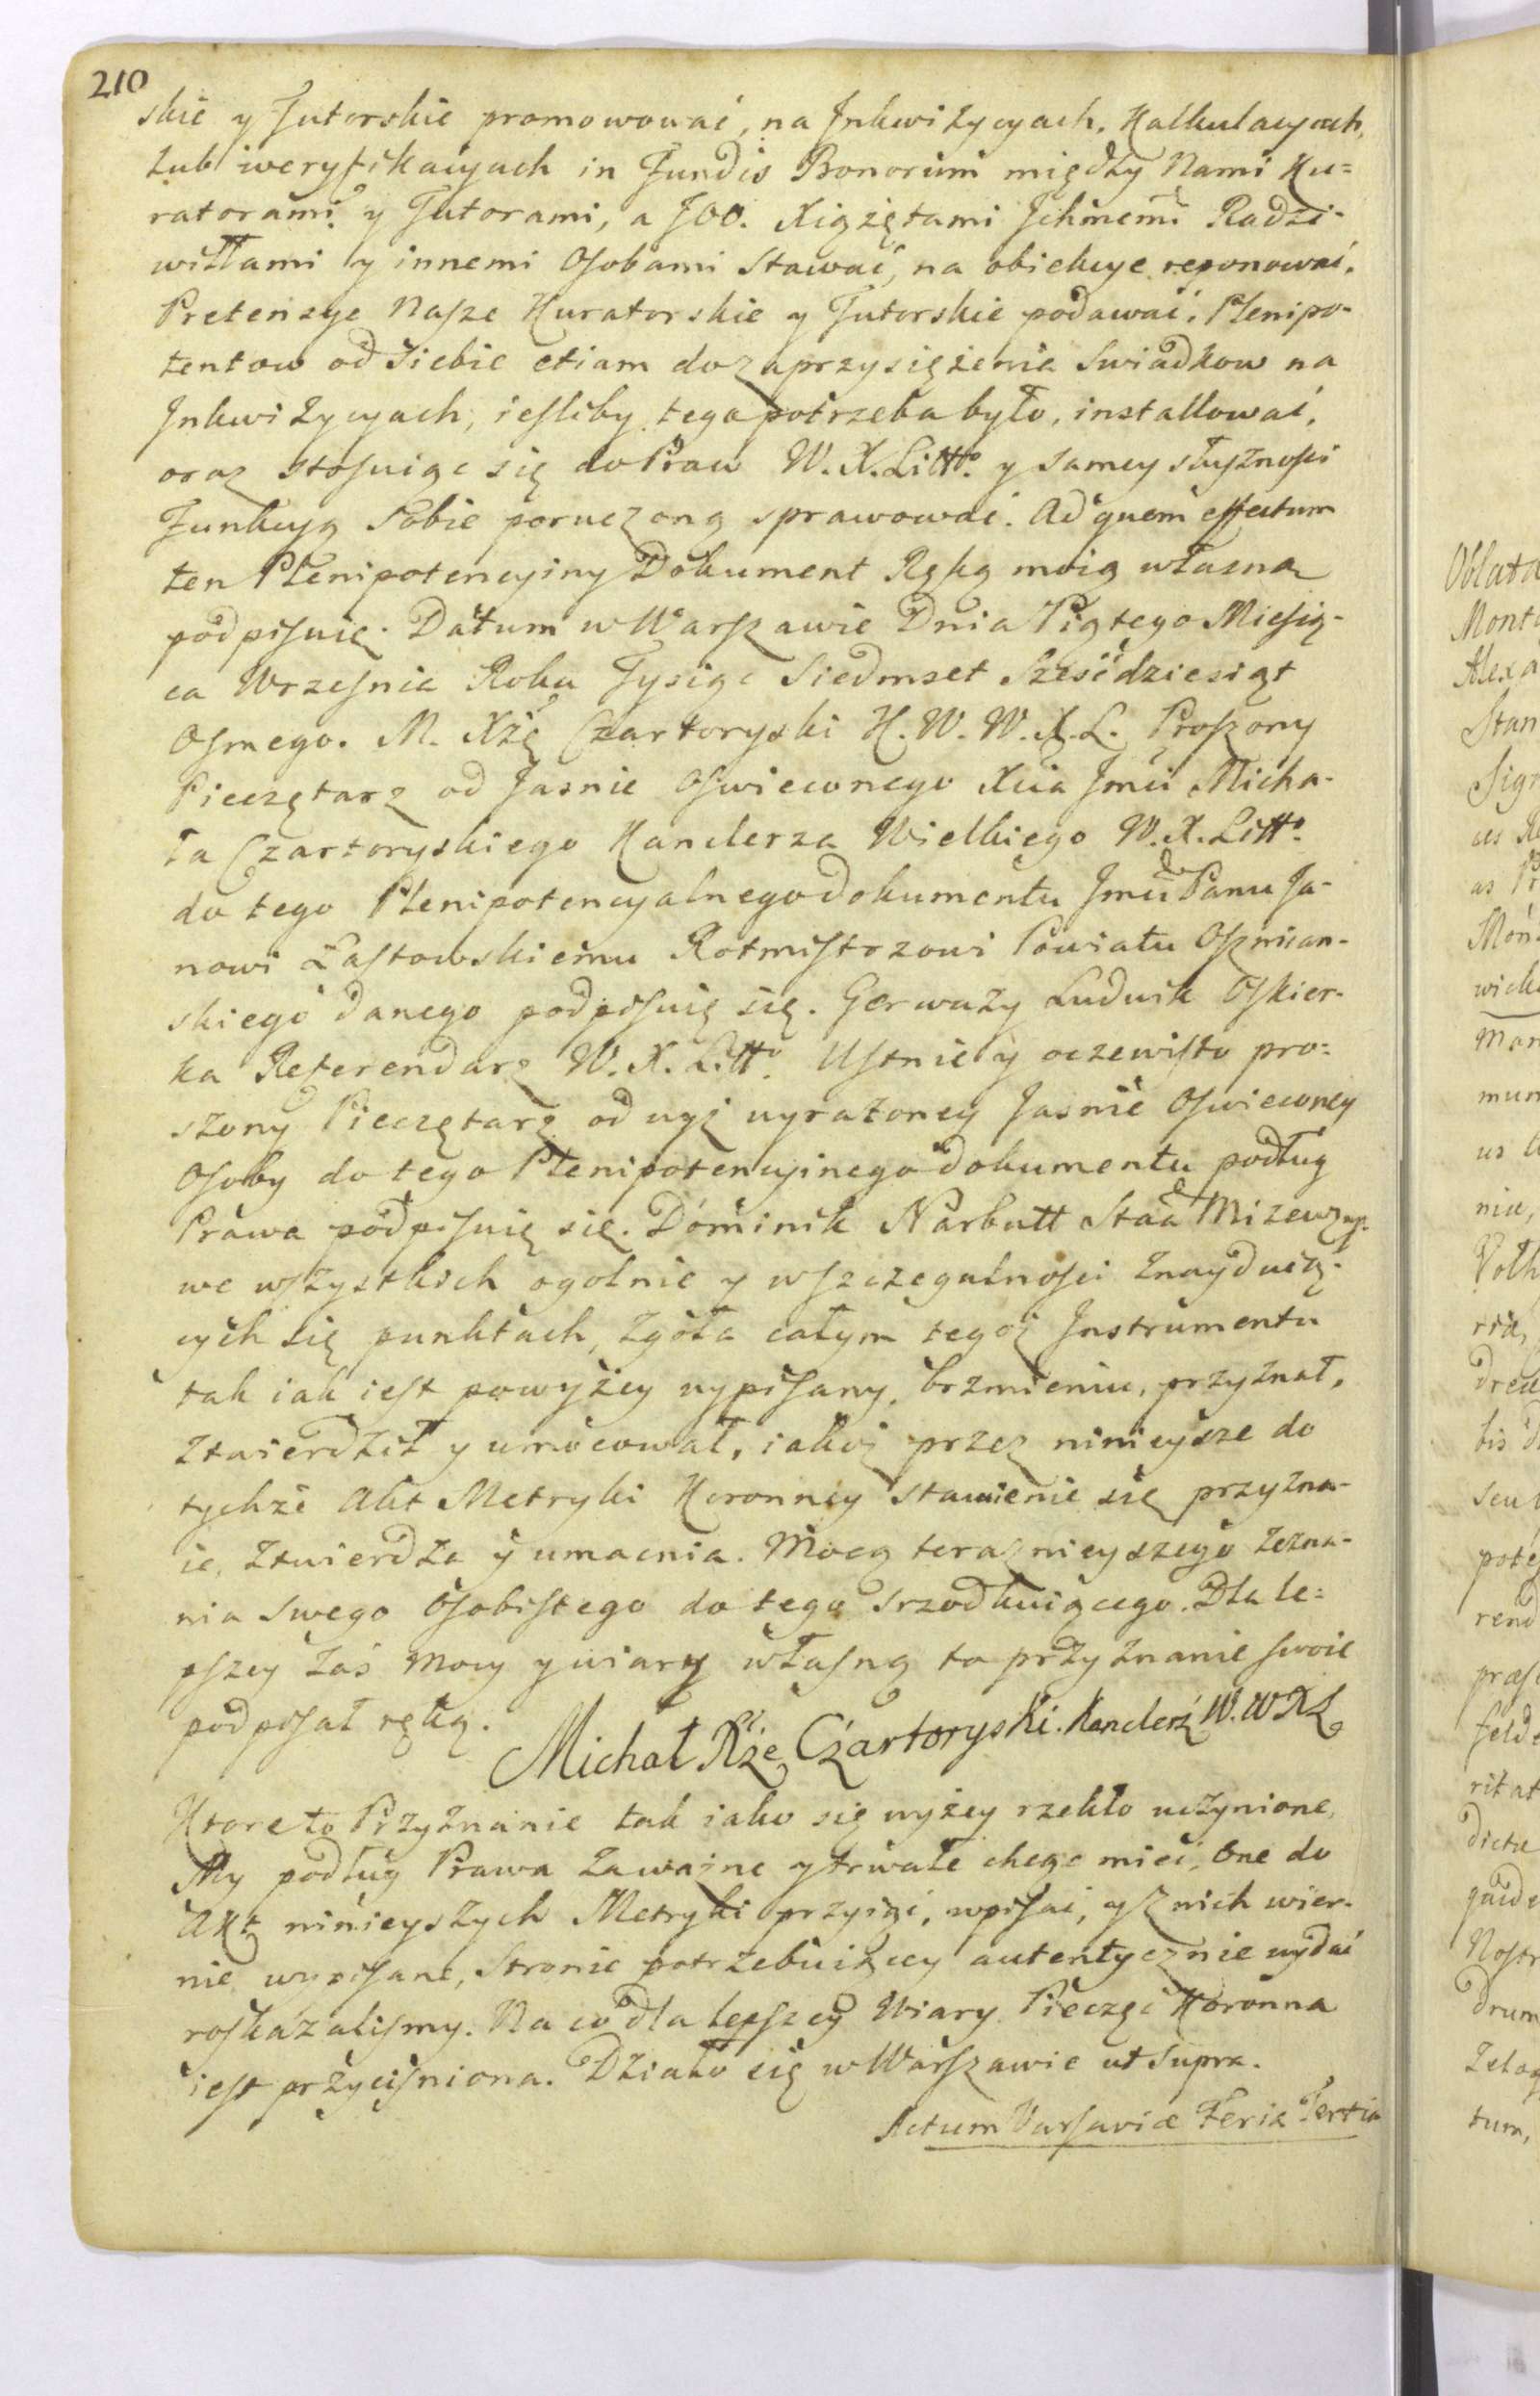 210
skie y Tutorskie promowować, na Jnkwizycyach, Kalkulacyach,
lub iweryfikacyach in Fundis Bonorum między Nami Ku=
ratorami y Tutorami, a JOO. Xiążętami Jchmemi Radzi-
wiłłami y innemi Osobami stawać, na obiekcye reponować,
Pretensye Nasze Kuratorskie y Tutorskie podawać, Plenipo-
tentow od siebie etiam do zaprzysiężenia Swiadkow na
Jnkwizycyach, iesliby tego potrzeba było, installować,
oraz stosuiąc się do Praw W. X. Litto. y samey słusznosci
Funkcyą sobie poruczoną sprawować. Ad quem effectum
ten Plenipotencyiny Dokument Ręką moią własną
podpisuię. Datum w Warszawie Dnia Piątego Miesią-
ca Wrzesnia Roku Tysiąc Siedmset Sześćdziesiąt
Osmego. M. Xżę Czartoryski K. W. W. X. L. Proszony
Pieczętarz od Jasnie Oswieconego Xcia Jmci Micha-
ła Czartoryskiego Kanclerza Wielkiego W. X. Litto.
do tego Plenipotencyalnego dokumentu Jmci Panu Ja-
nowi Łastowskiemu Rotmistrzowi Powiatu Oszmian-
skiego danego podpisuię się. Gerwazy Ludwik Oskier-
ka Referendarz W. X. Litto. Ustnie y oczewisto pro-
szony Pieczętarz od wyż wyrażoney Jasnie Oswieconey
Osoby do tego Plenipotencyinego dokumentu podług
Prawa podpisuię się. Dominik Narbutt Staa
we wszystkich ogolnie y wszczegulnosci znayduią-
cych się punktach, zgoła całym tegoż Jnstrumentu
tak iak iest powyżey wypisany, brzmieniu, przyznał,
ztwierdził y umocował, iakoż przez ninieysze do
tychże Akt Metryki Koronney stawienie się przyzna-
ie, ztwierdza y umacnia. Mocą terazznieyszego zezna-
nia swego Osobistego do tego srzodkuiącego. Dla le=
pszey zaś mocy y wiary własną to przyznanie swoie
podpisał ręką.
Michał Xże Czartoryski. Kanclerz W. W X L
Ktore to Przyznanie tak iako się wyżey rzekło uczynione,
My podług Prawa za ważne y trwałe chcąc mieć, one do
Akt ninieyszych Metryki przyiąć, wpisać, y z nich wier-
nie wypisane, Stronie potrzebuiącey autentycznie wydać
roskazalismy. Na co dla lepszey Wiary Pieczęć Koronna
iest przycisniona. Działo się w Warszawie ut Supra.
Actum Varsaviæ Feria Tertia